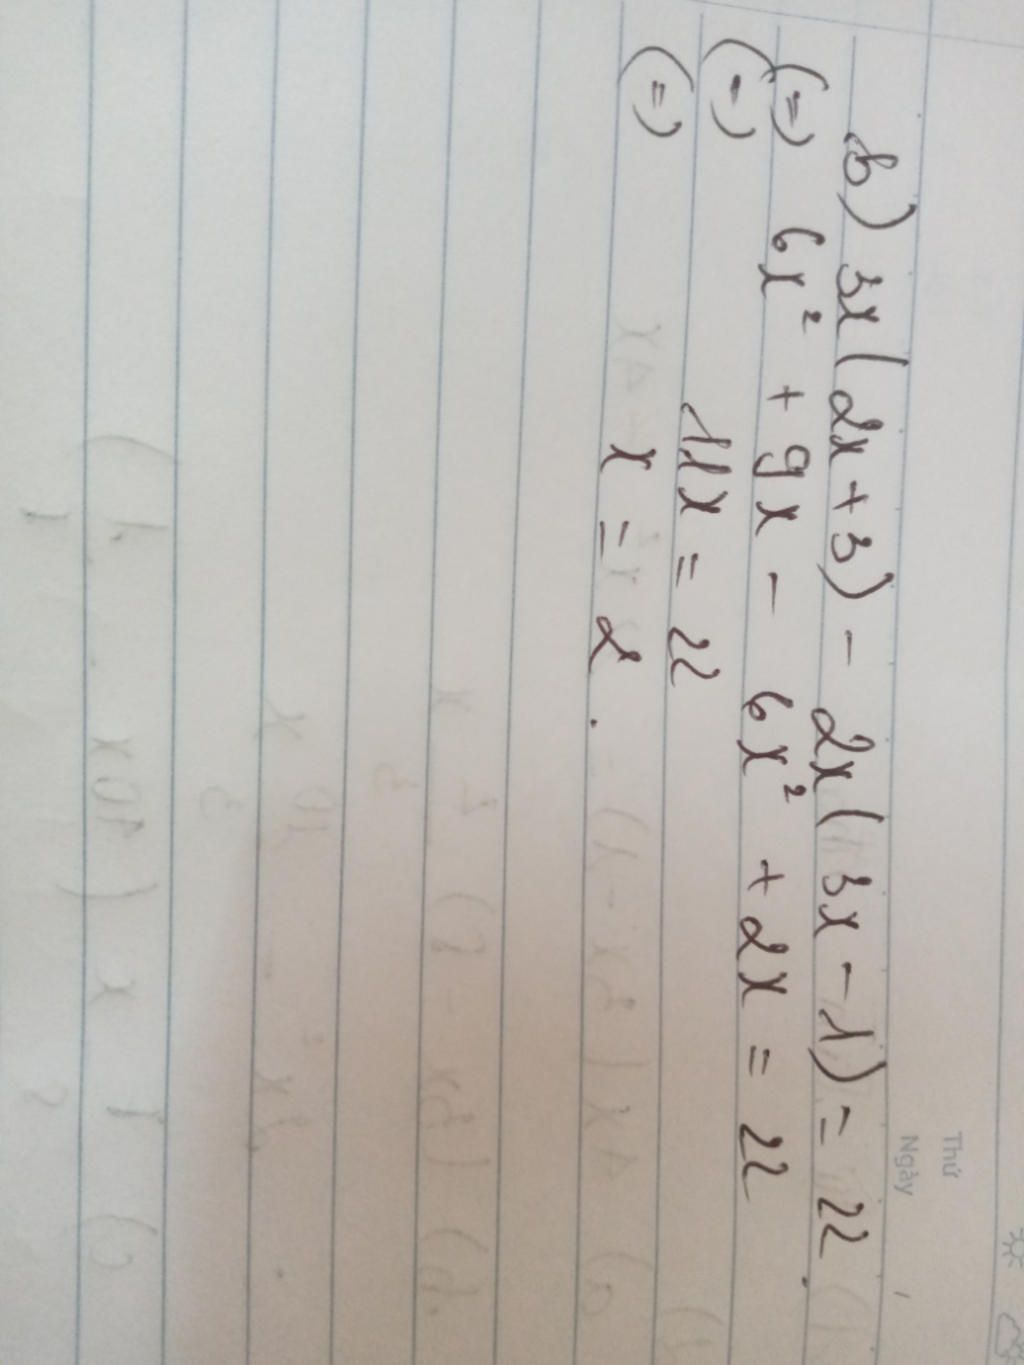 Thứ
Ngày
b) 3x(2x+3) - 2x(3x-1) = 22.
(=) 6x² + 9x - 6x² + 2x = 22
(=) 11x = 22
(=) x = 2.